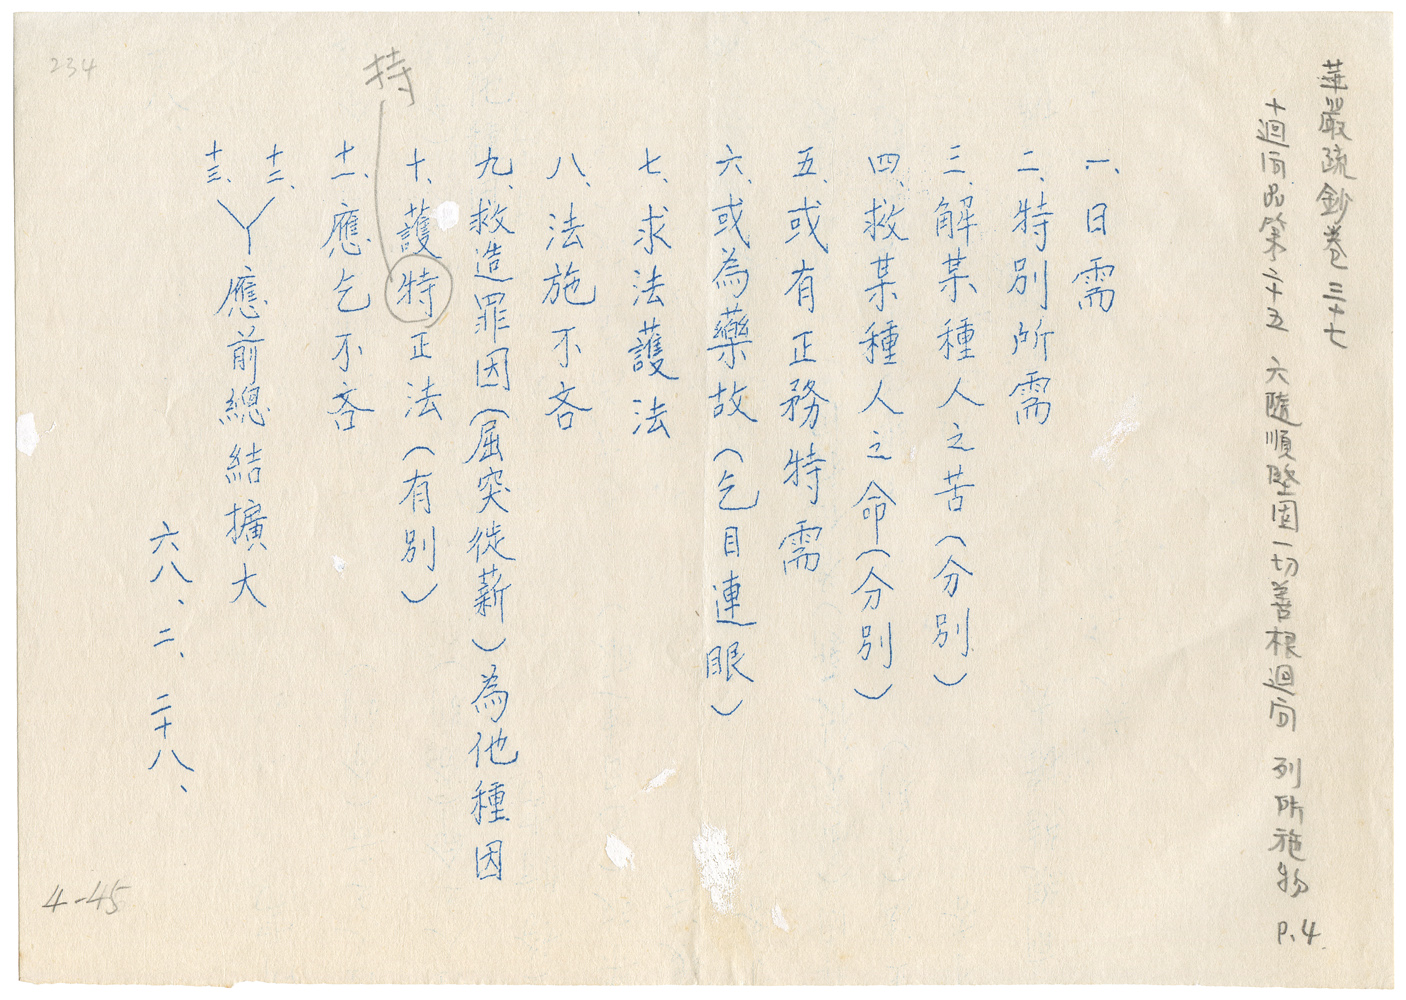 華嚴疏鈔卷三十七
十迴向品第二十五 六隨順堅固一切善根迴向 列所施物 P.4.
一、日需
二、特別所需
三、解某種人之苦(分別)
四、救某種人之命(分別)
五、或有正務特需
六、或為藥故(乞目連眼)
七、求法護法
八、法施不吝
九、救造罪因(屈突徙薪)為他種因
十、護特正法(有別)
持
十一、應乞不吝
十二、
十三、
應前總結擴大
六八、二、二十八、
234
4-45